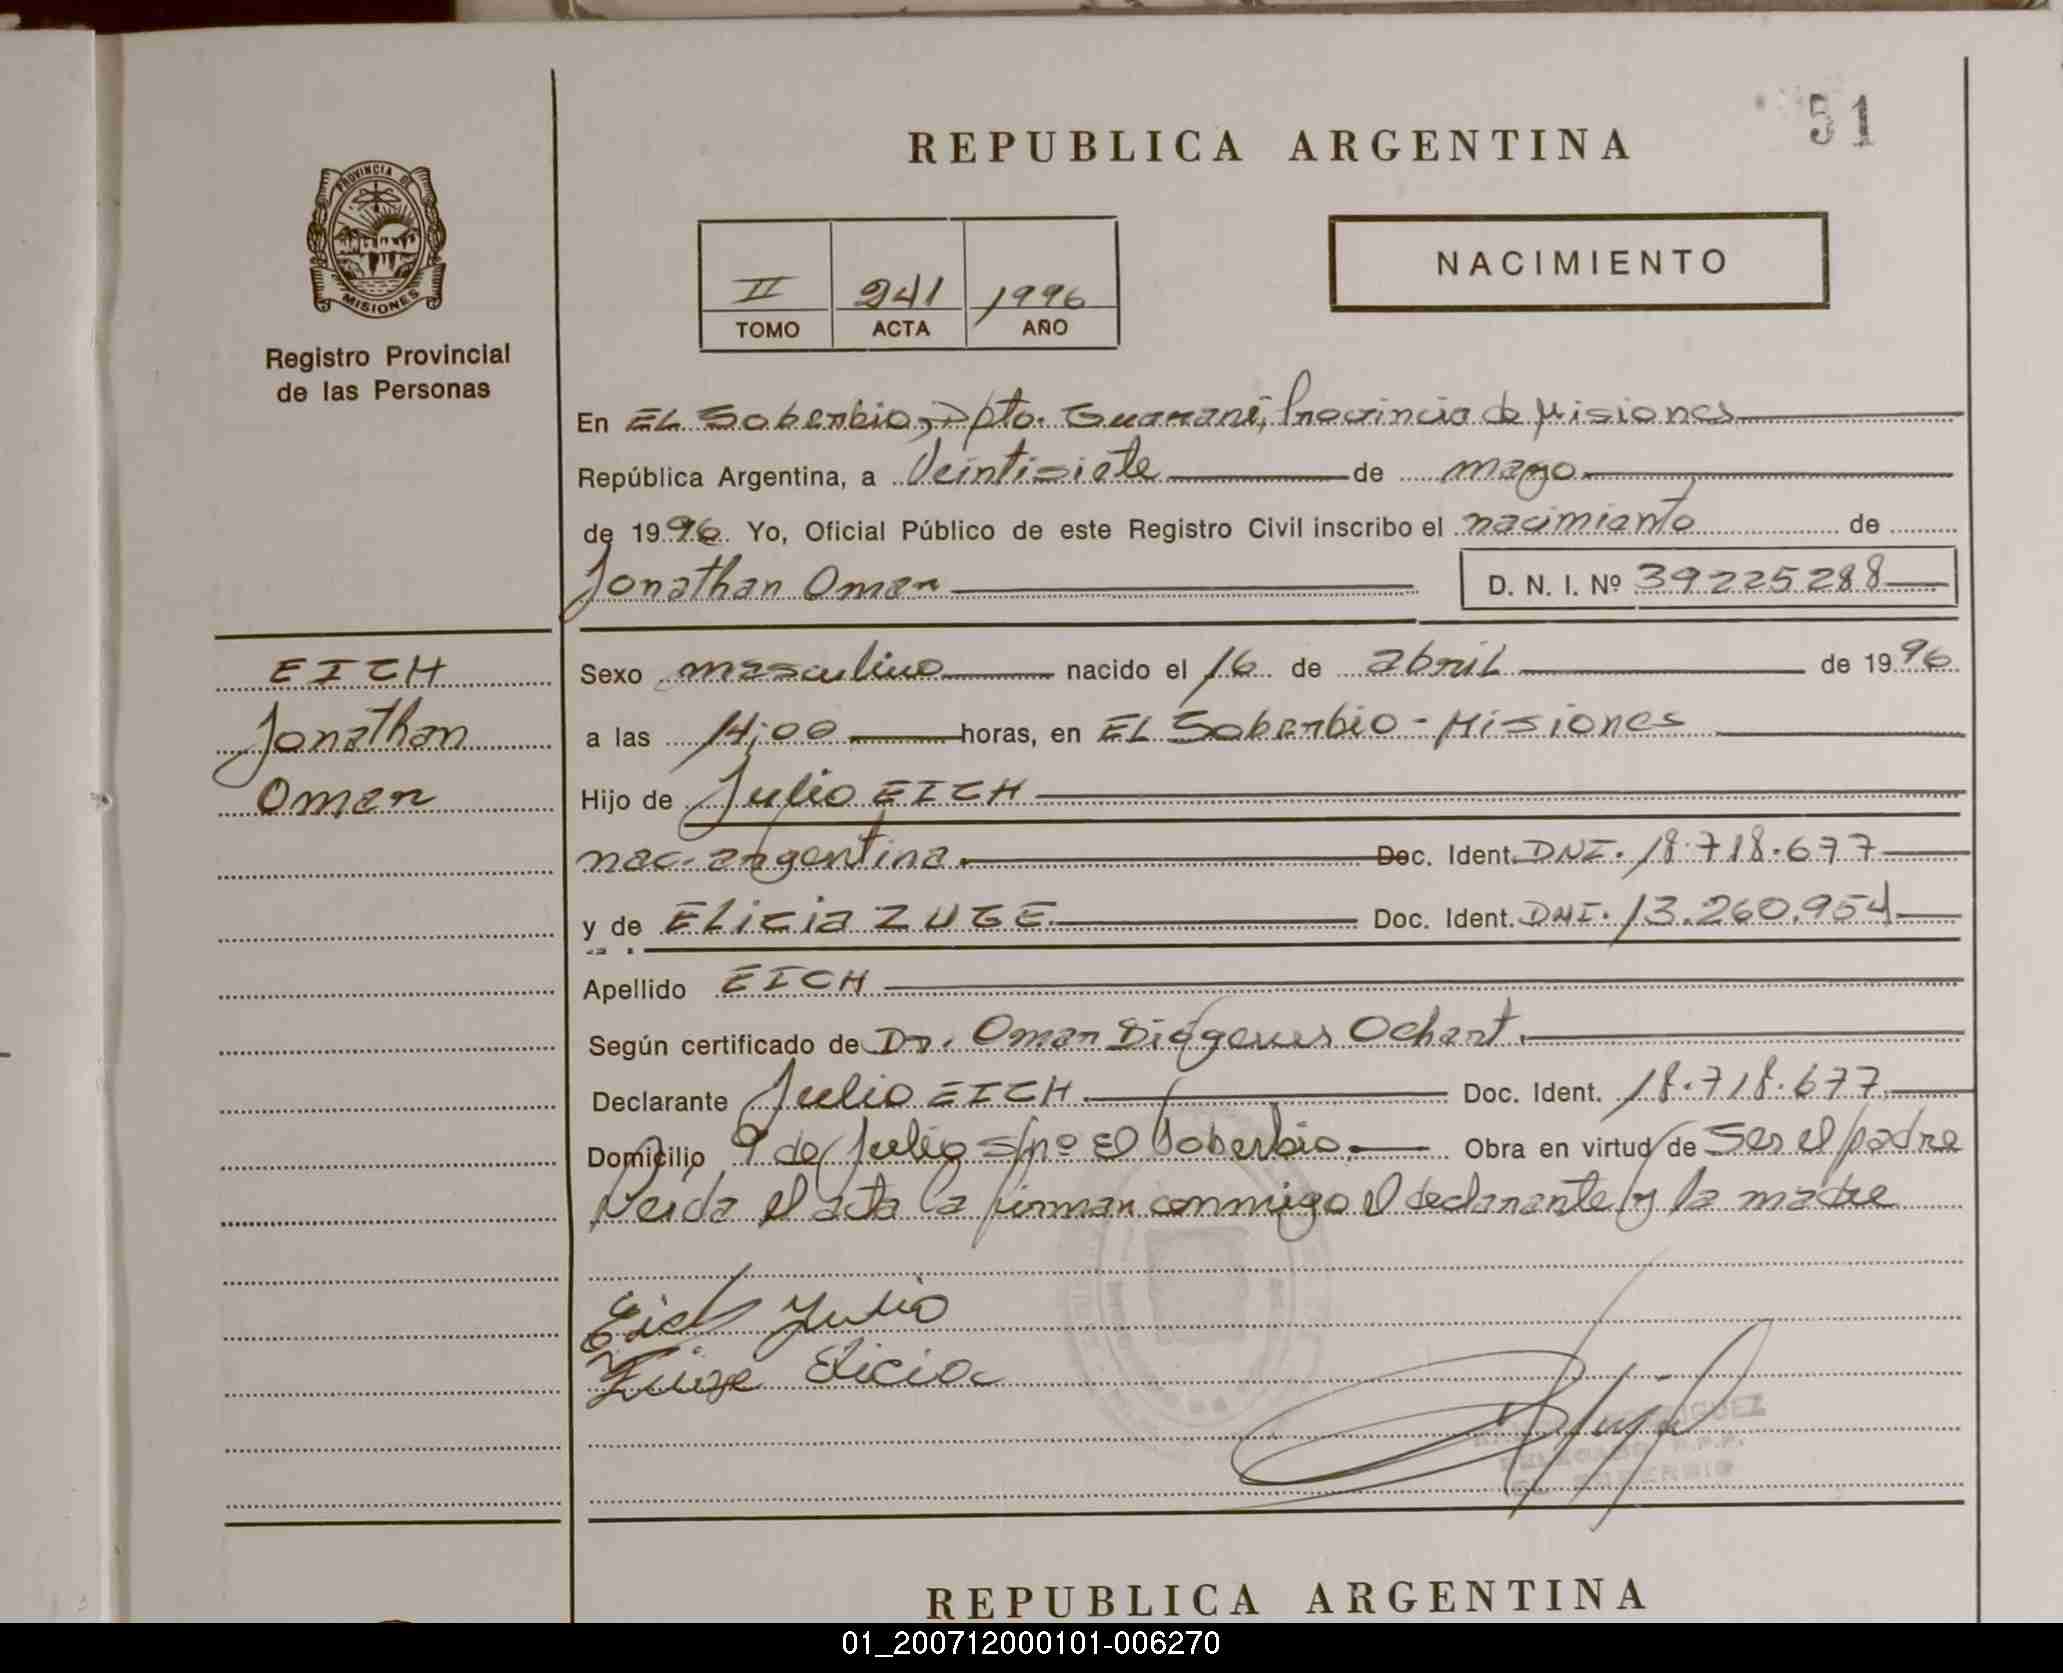 51
REPUBLICA ARGENTINA
PROVINCIA DE
MISIONES
Registro Provincial
de las Personas
II 241 1996
TOMO ACTA AÑO
NACIMIENTO
En EL Soberbio, Dpto. Guaraní, Provincia de Misiones
República Argentina, a Veintisiete de mayo
de 1996. Yo, Oficial Público de este Registro Civil inscribo el nacimiento de
Jonathan Omar D. N. I. Nº 39225288
EICH
Jonathan
Omar
Sexo masculino nacido el 16 de abril de 1996
a las 14:00 horas, en EL Soberbio - Misiones
Hijo de Julio EICH
nac. argentina. Doc. Ident. DNI. 18.718.677
y de ELicia ZUGE Doc. Ident. DNI. 13.260.954
Apellido EICH
Según certificado de Dr. Omar Diógenes Ochart.
Declarante Julio EICH. Doc. Ident. 18.718.677
Domicilio 9 de Julio s/nº El Soberbio. Obra en virtud de Ser el padre
Leida el acta la firman conmigo el declarante y la madre
Eich Julio
Zuge Elicia
DELEGADO R.P.P.
EL SOBERBIO
REPUBLICA ARGENTINA
01_200712000101-006270